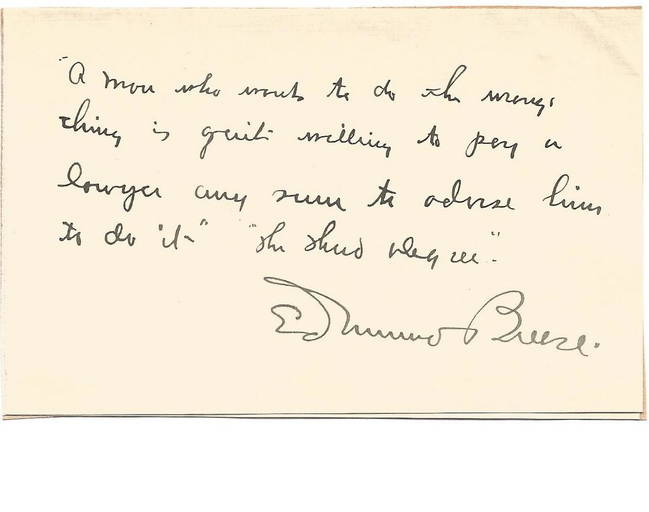 "A man who wants to do the wrong
thing is quite willing to pay a
lawyer any sum to advise him
to do it" "The Third Degree".
Edmund Breese.